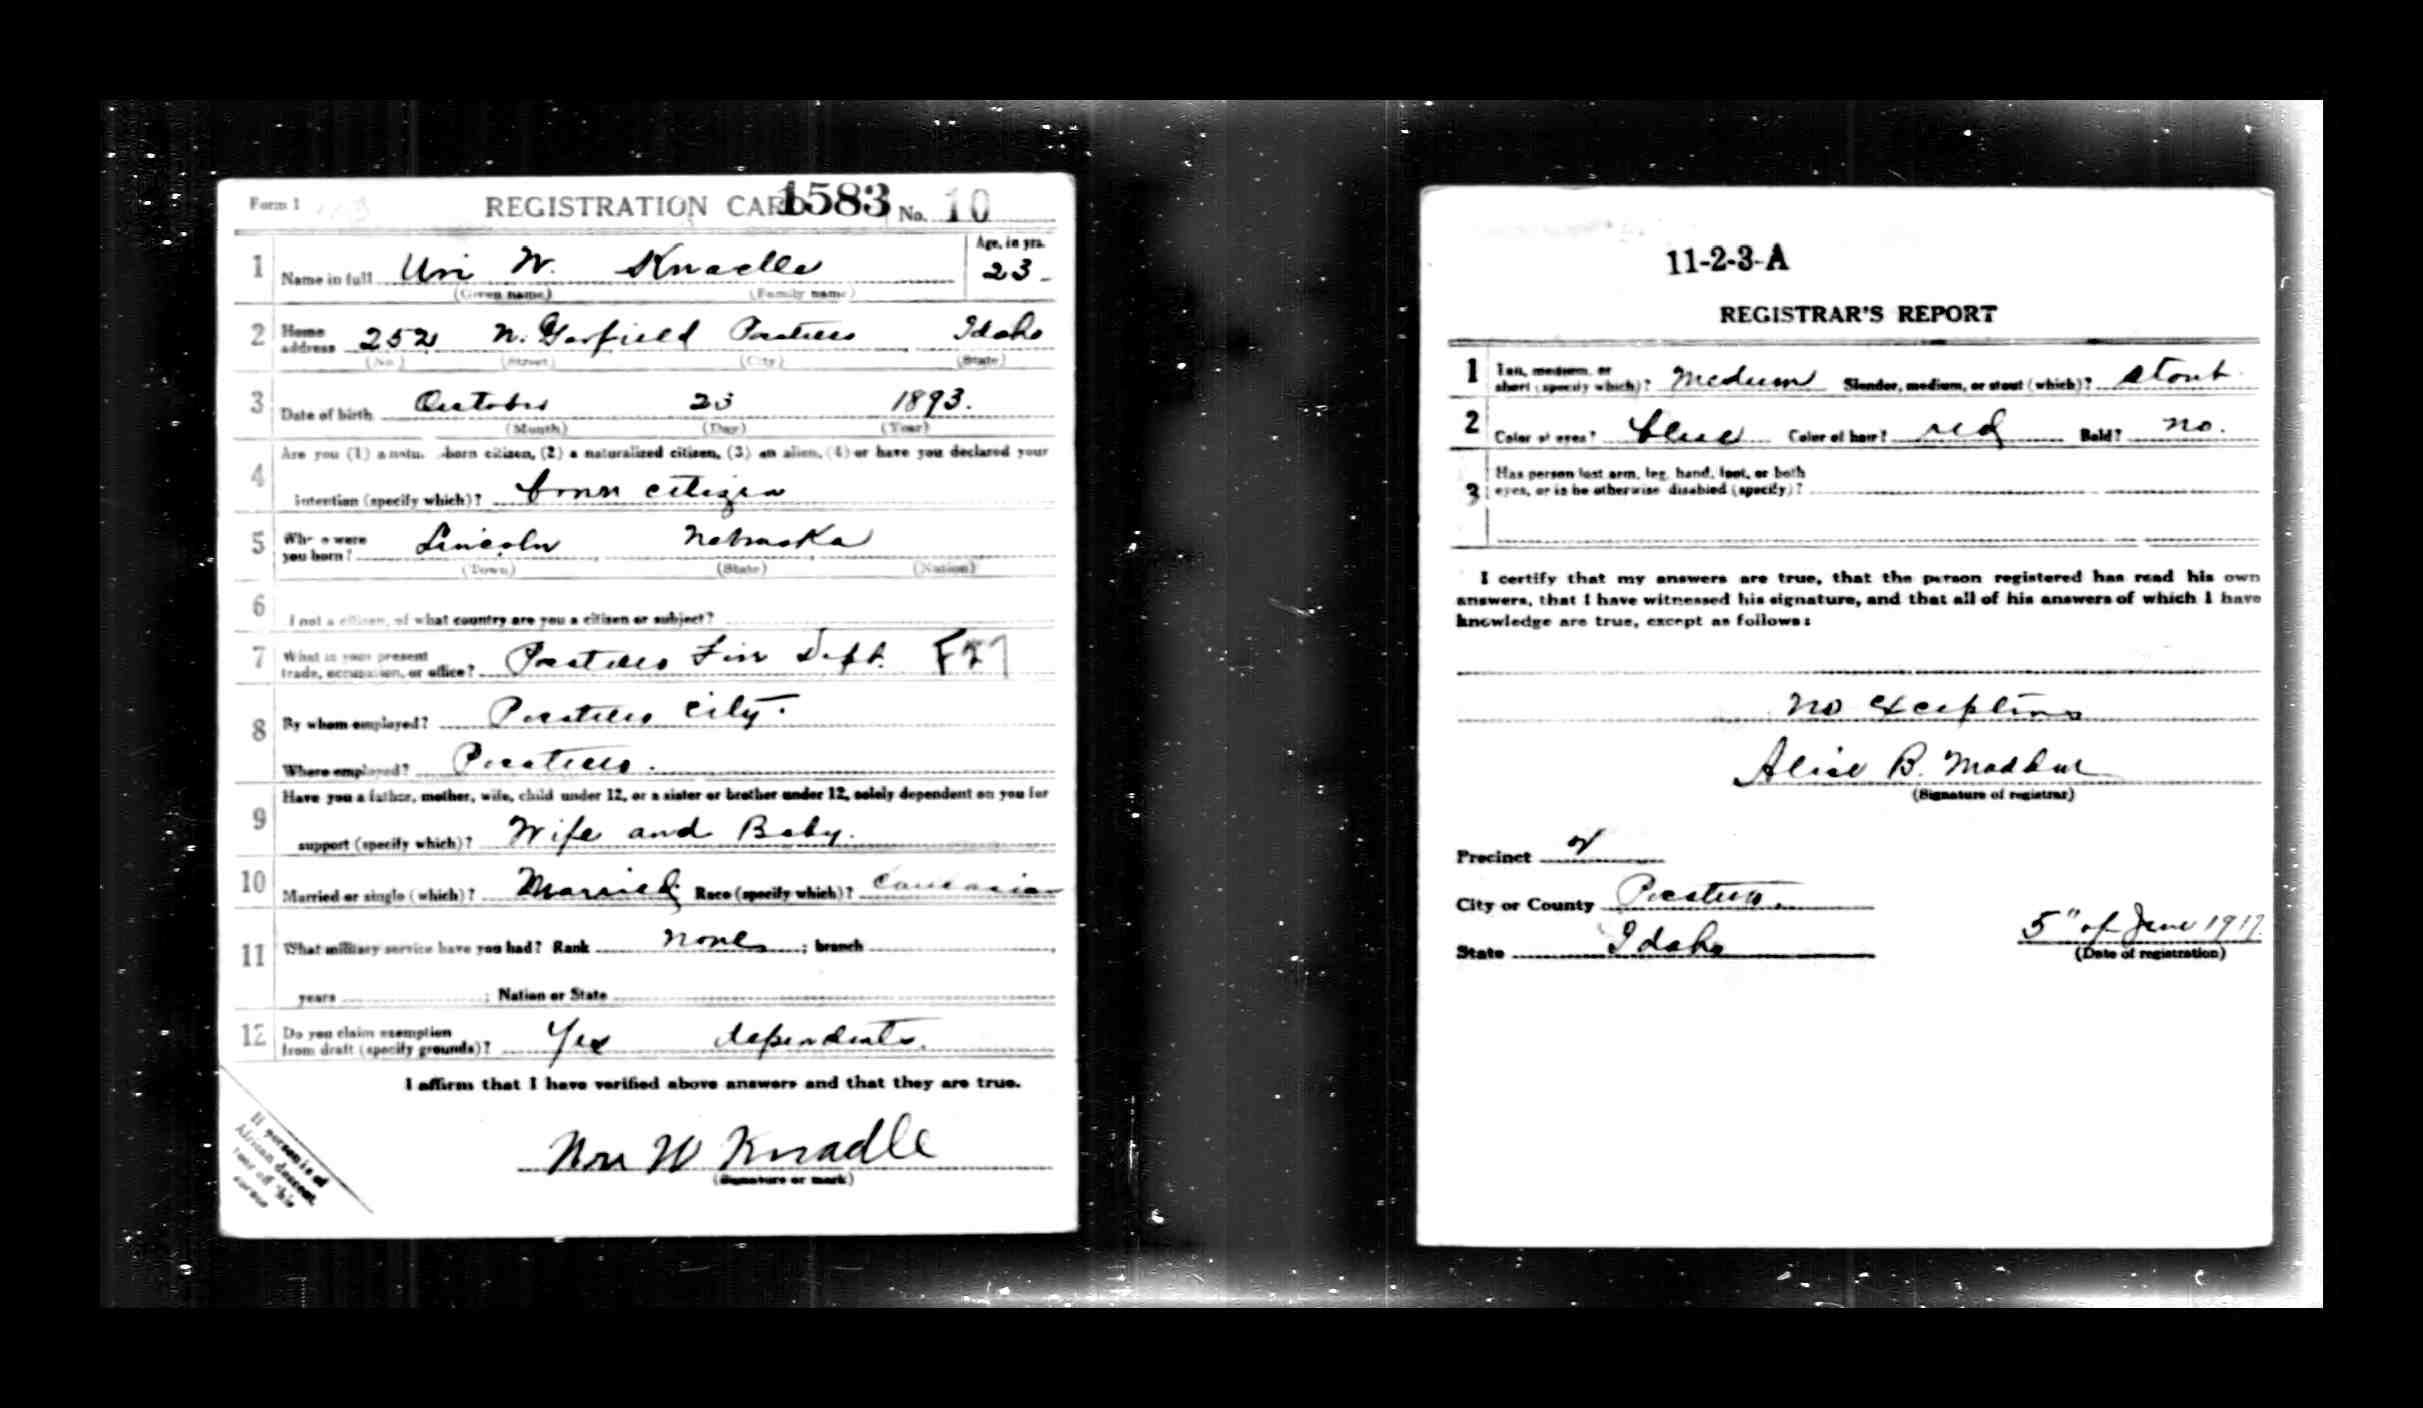 Form 1 REGISTRATION CARD 1583 No. 10
1 Name in full Uri W. Knadle Age, in yrs. 23
(Given name) (Family name)
2 Home address 252 N. Garfield Pocatello Idaho
(No.) (Street) (City) (State)
3 Date of birth October 23 1893.
(Month) (Day) (Year)
Are you (1) a natu born citizen, (2) a naturalized citizen, (3) an alien, (4) or have you declared your
4 intention (specify which)? born citizen
5 Where were you born? Lincoln, Nebraska
(Town) (State) (Nation)
6 I not a citizen, of what country are you a citizen or subject?
7 What is your present trade, occupation, or office? Pocatello Fire Dept.
8 By whom employed? Pocatello City.
Where employed? Pocatello.
9 Have you a father, mother, wife, child under 12, or a sister or brother under 12, solely dependent on you for
support (specify which)? Wife and Baby.
10 Married or single (which)? Married Race (specify which)? Caucasian
11 What military service have you had? Rank none; branch
years ; Nation or State
12 Do you claim exemption from draft (specify grounds)? Yes dependents.
I affirm that I have verified above answers and that they are true.
W Knadle
(Signature or mark)
If person is of
African descent,
tear off this
corner
11-2-3-A
REGISTRAR'S REPORT
1 Tall, medium, or short (specify which)? Medium Slender, medium, or stout (which)? stout
2 Color of eyes? blue Color of hair? red Bald? no.
3 Has person lost arm, leg, hand, foot, or both
eyes, or is he otherwise disabled (specify)?
I certify that my answers are true, that the person registered has read his own
answers, that I have witnessed his signature, and that all of his answers of which I have
knowledge are true, except as follows:
no exceptions
Alice B.
(Signature of registrar)
Precinct
City or County Pocatello.
State Idaho
5" of June 1917.
(Date of registration)